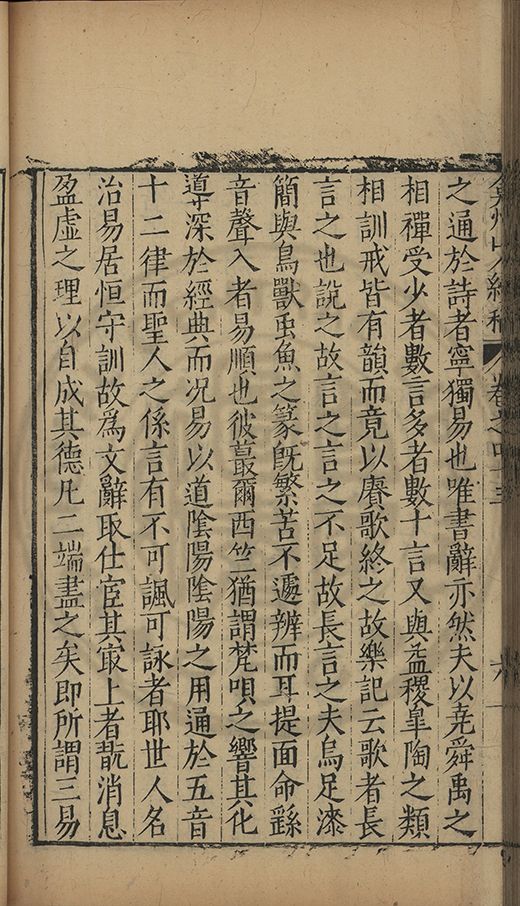 弇州山人續稿 卷之四十三 六
之通於詩者寧獨易也唯書辭亦然夫以堯舜禹之
相禪受少者數言多者數十言又與益稷臯陶之類
相訓戒皆有韻而竟以賡歌終之故樂記云歌者長
言之也說之故言之言之不足故長言之夫鳥足漆
簡與鳥獸虫魚之篆旣繁苦不遽辨而耳提面命繇
音聲入者易順也彼蕞爾西竺猶謂梵唄之響其化
導深於經典而况易以道隂陽隂陽之用通於五音
十二律而聖人之係言有不可諷可詠者耶世人名
治易居恒守訓故爲文辭取仕宦其㝡上者翫消息
盈虛之理以自成其德凡二端盡之矣即所謂三易